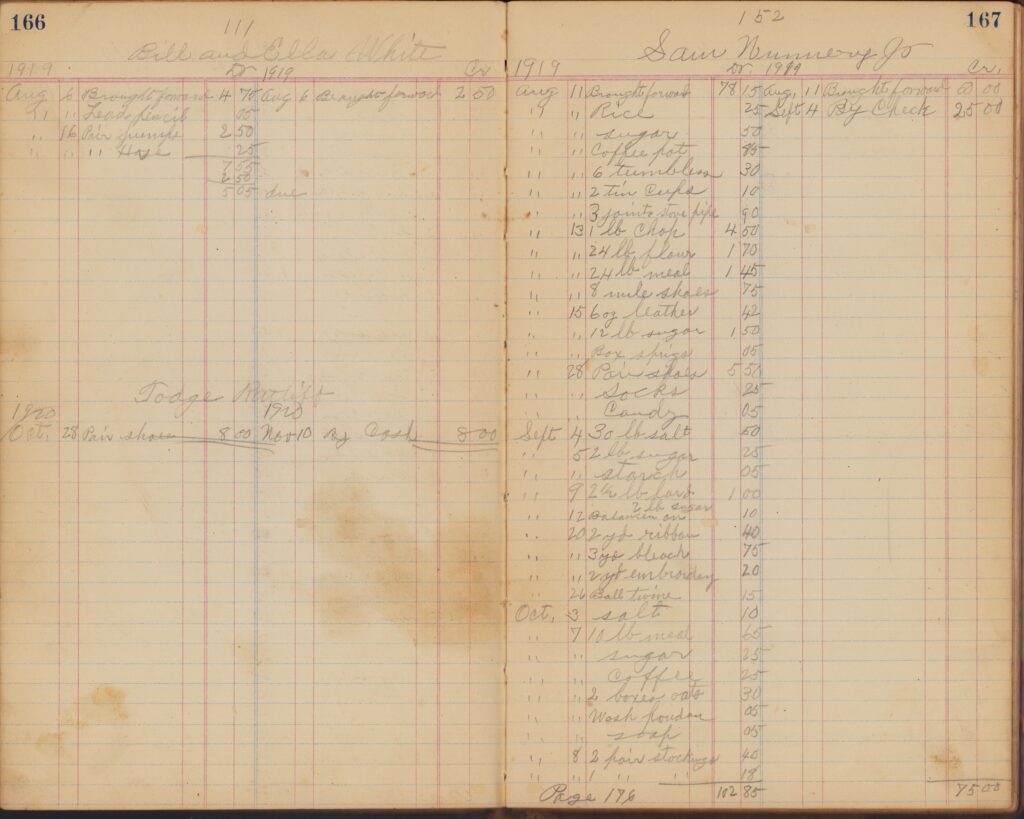 166
111
Bill and Ella White
1919 Dr 1919 Cr
Aug 6 Brought forward 4 70 Aug 6 Brought forward 2 50
" " Lead pencil 05
" 16 Pair pumps 2 50
" " " Hose 25
7 55
2 50
5 05 due
Todge Ratliff
1920 1920
Oct. 28 Pair shoes 8 00 Nov 10 By Cash 8 00
167
152
Sam Nunnery Jr
1919 Dr 1919 Cr.
Aug 11 Brought forward 78 15 Aug, 11 Brought forward 00
" " Rice 25 Sept 4 By Check 25 00
" " sugar 50
" " Coffee pot 85
" " 6 tumblers 30
" " 2 tin Cups 10
" " 3 joints stove pipe 90
" 13 1 lb Chop 4 50
" " 24 lb flour 1 70
" " 24 lb meal 1 45
" " 8 mule shoes 75
" 15 6 oz leather 42
" " 12 lb sugar 1 50
" " Box sprigs 05
" 28 Pair shoes 5 50
" " Socks 25
" " Candy 05
Sept 4 30 lb salt 60
" 5 2 lb sugar 25
" " starch 05
" 9 2½ lb lard 1 00
" 12 Balance on 2 lb sugar 10
" 20 2 yd ribbon 40
" " 3 yd bleach 75
" " 2 yd embroidery 20
" 26 Ball twine 15
Oct, 3 salt 10
" 7 10 lb meal 65
" " sugar 25
" " coffee 25
" " 2 boxes oats 30
" " Wash powder 05
" " soap 05
" 8 2 pair stockings 40
" " 1 " " 18
Page 176 102 85 75 00